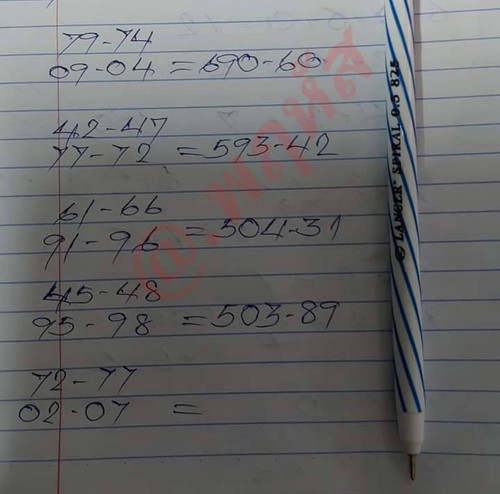 79-74
09-04 = 690-60
42-47
77-72 = 593-42
61-66
91-96 = 304-31
45-48
95-98 = 503-89
72-77
02-07 =
LANCER SPIRAL 0.5 825